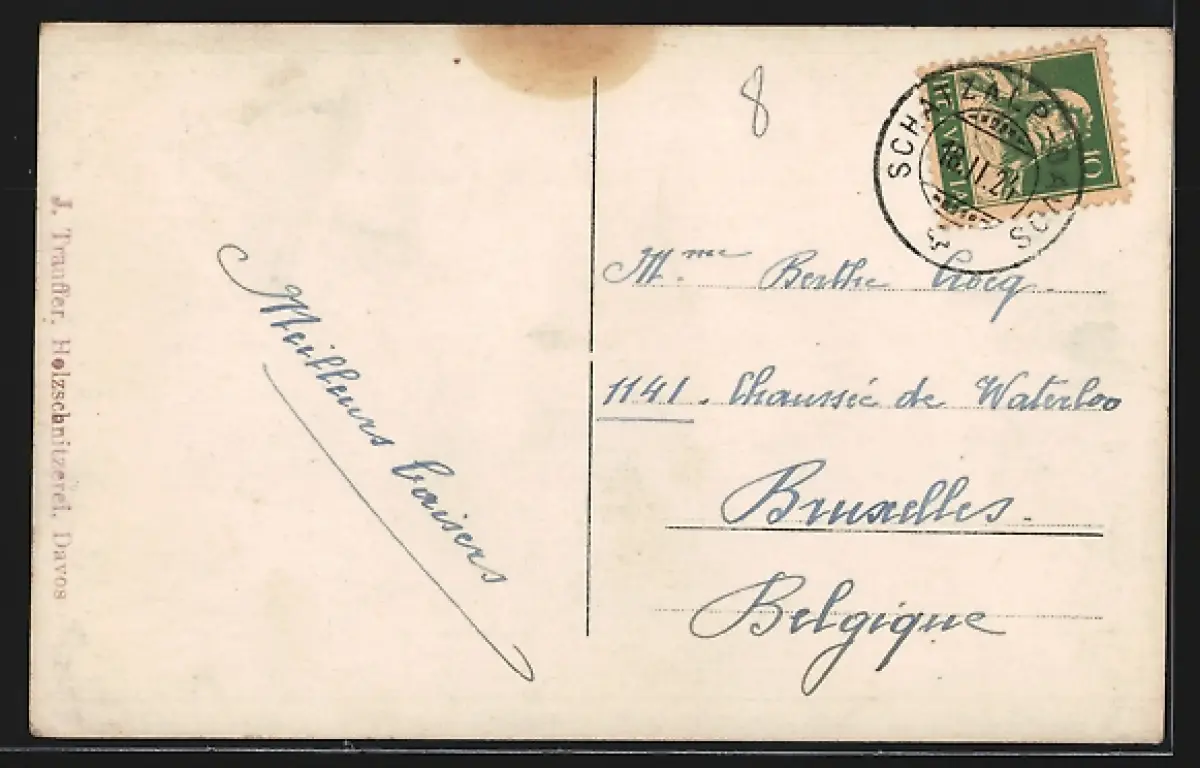 J. Traufler, Holzschnitzerei, Davos
Meilleurs baisers
8
SCHATZALP-DAVOS
18.II.2
HELVETIA
10
Mme Berthe Crocq.
1141. Chaussée de Waterloo
Bruxelles.
Belgique